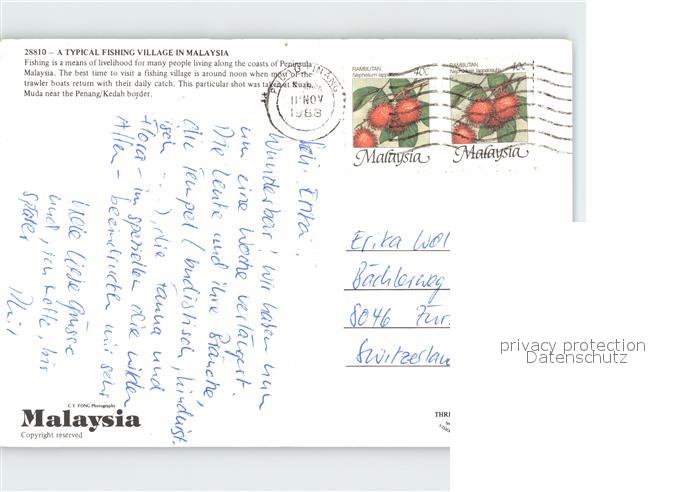 28810 – A TYPICAL FISHING VILLAGE IN MALAYSIA
Fishing is a means of livelihood for many people living along the coasts of Peninsula
Malaysia. The best time to visit a fishing village is around noon when most of the
trawler boats return with their daily catch. This particular shot was taken at Kuala
Muda near the Penang/Kedah border.
PULAU PINANG
11 NOV
1988
RAMBUTAN
Nephelium lappaceum
40c
Malaysia
RAMBUTAN
Nephelium lappaceum
40c
Malaysia
Erika
Wunderbar! Wir haben nun
um eine Woche verlängert.
Die Leute und ihre Bräuche,
die Tempel (budistisch, hinduist-
isch ...), die Fauna und
Flora - im speziellen die wilden
Affen - beeindrucken mich sehr
Viele liebe Grüsse
und, ich hoffe, bis
später
Erika Wol
Bächlerweg
8046 Zür
Switzerlan
privacy protection
Datenschutz
C.T. FONG Photography
Malaysia
Copyright reserved
THRE